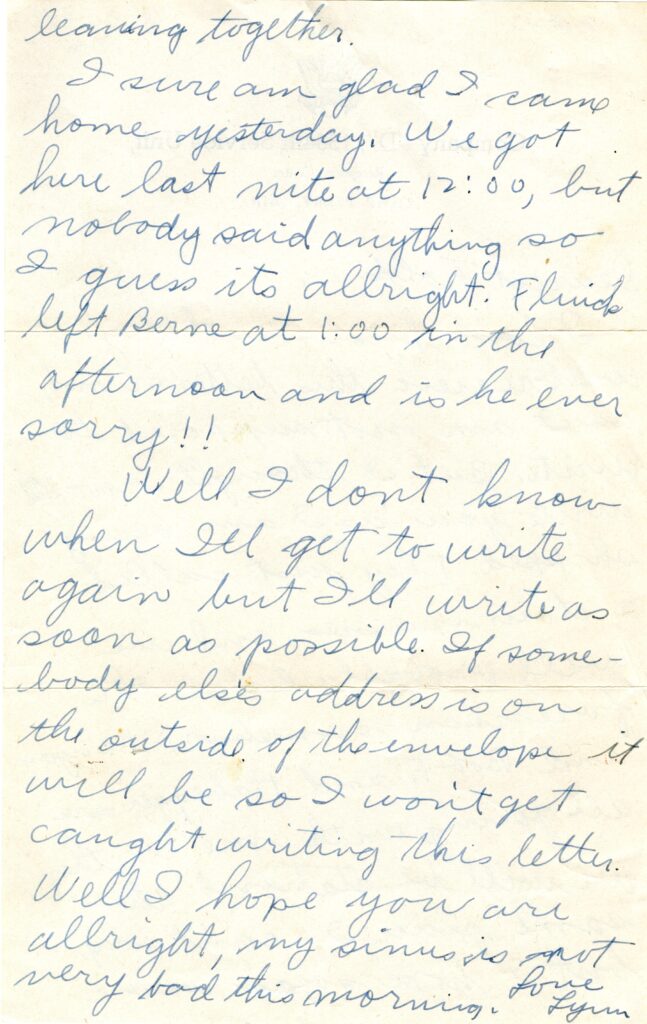 leaving together.
I sure am glad I came
home yesterday. We got
here last nite at 12:00, but
nobody said anything so
I guess its allright. Fluick
left Berne at 1:00 in the
afternoon and is he ever
sorry!!
Well I don't know
when I'll get to write
again but I'll write as
soon as possible. If some-
body else's address is on
the outside of the envelope it
will be so I won't get
caught writing this letter.
Well I hope you are
allright, my sinus is not
very bad this morning. Love
Lynn